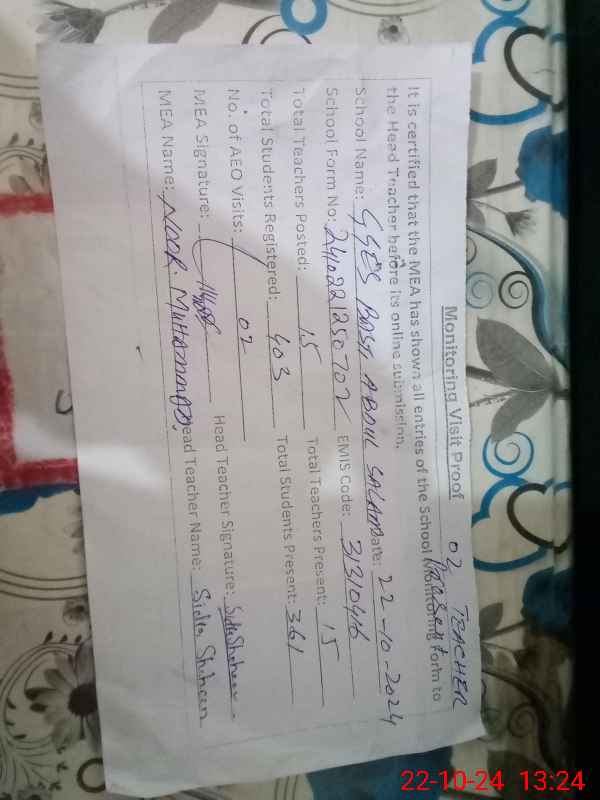 Monitoring Visit Proof 02 TEACHER
Present
It is certified that the MEA has shown all entries of the School Monitoring Form to
the Head Teacher before its online submission.
School Name: GGES BASTI ABDUL SALAM Date: 22-10-2024
School Form No: 2410221250702 EMIS Code: 31310416
Total Teachers Posted: 15 Total Teachers Present: 15
Total Students Registered: 403 Total Students Present: 361
No. of AEO Visits: 02
MEA Signature: Head Teacher Signature: Sidra Shaheen
MEA Name: NOOR MUHAMMAD Head Teacher Name: Sidra Shaheen
22-10-24 13:24